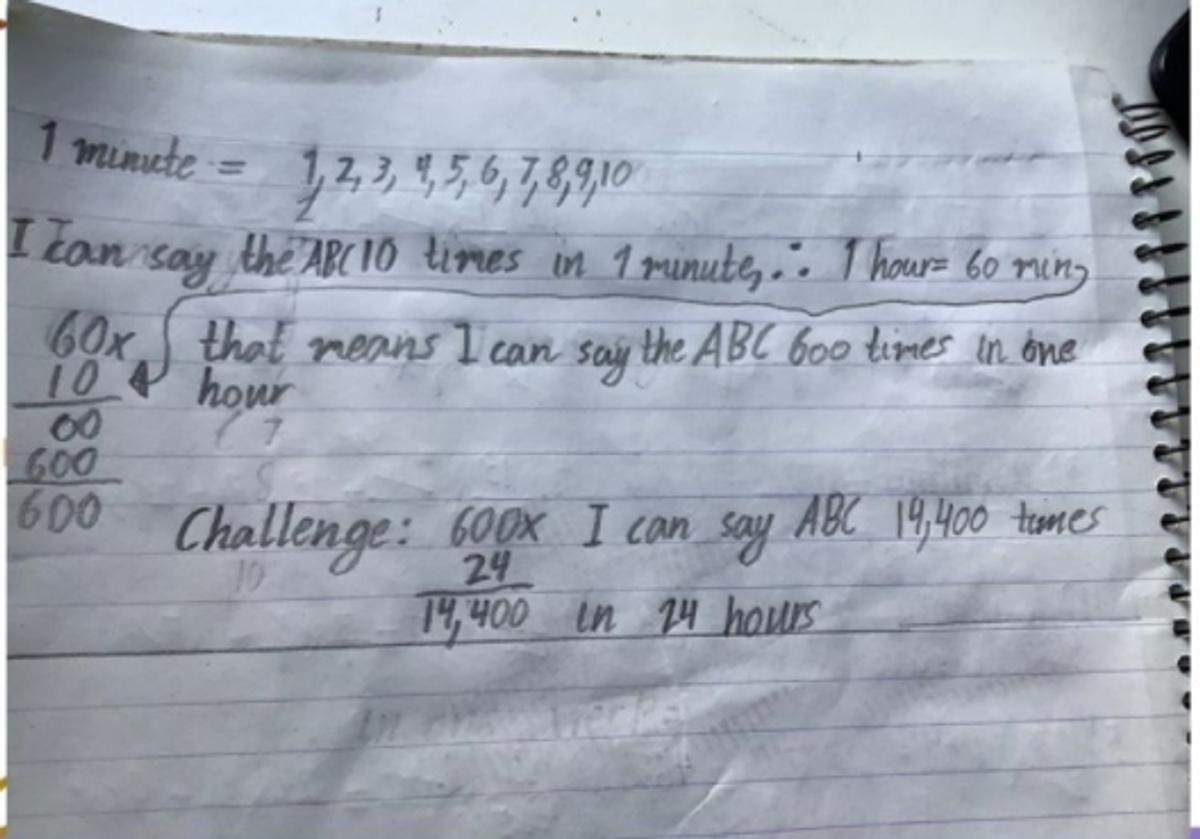 1 minute = 1, 2, 3, 4, 5, 6, 7, 8, 9, 10
I can say the ABC 10 times in 1 minute, ∴ 1 hour = 60 min,
60x that means I can say the ABC 600 times in one
10 hour
00
600
600
Challenge: 600x I can say ABC 14,400 times
24
14,400 in 24 hours